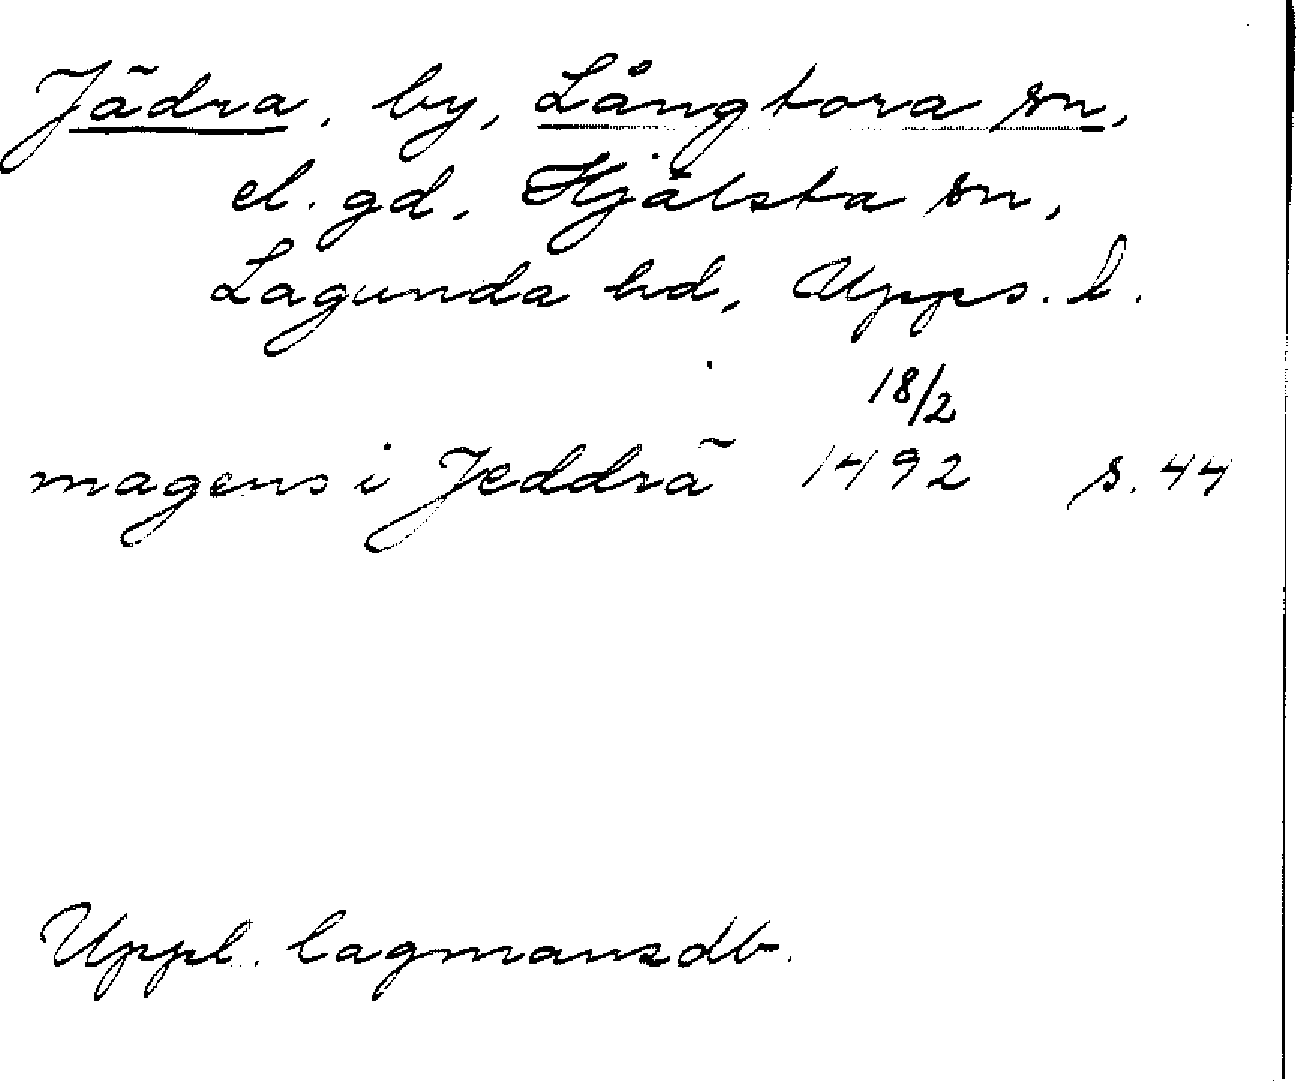 Jädra, by, Långtora sn,
el. gd, Hjälsta sn,
Lagunda hd, Upps. l.
18/2
magens i Jeddrä 1492 s. 44
Uppl. lagmansdb.